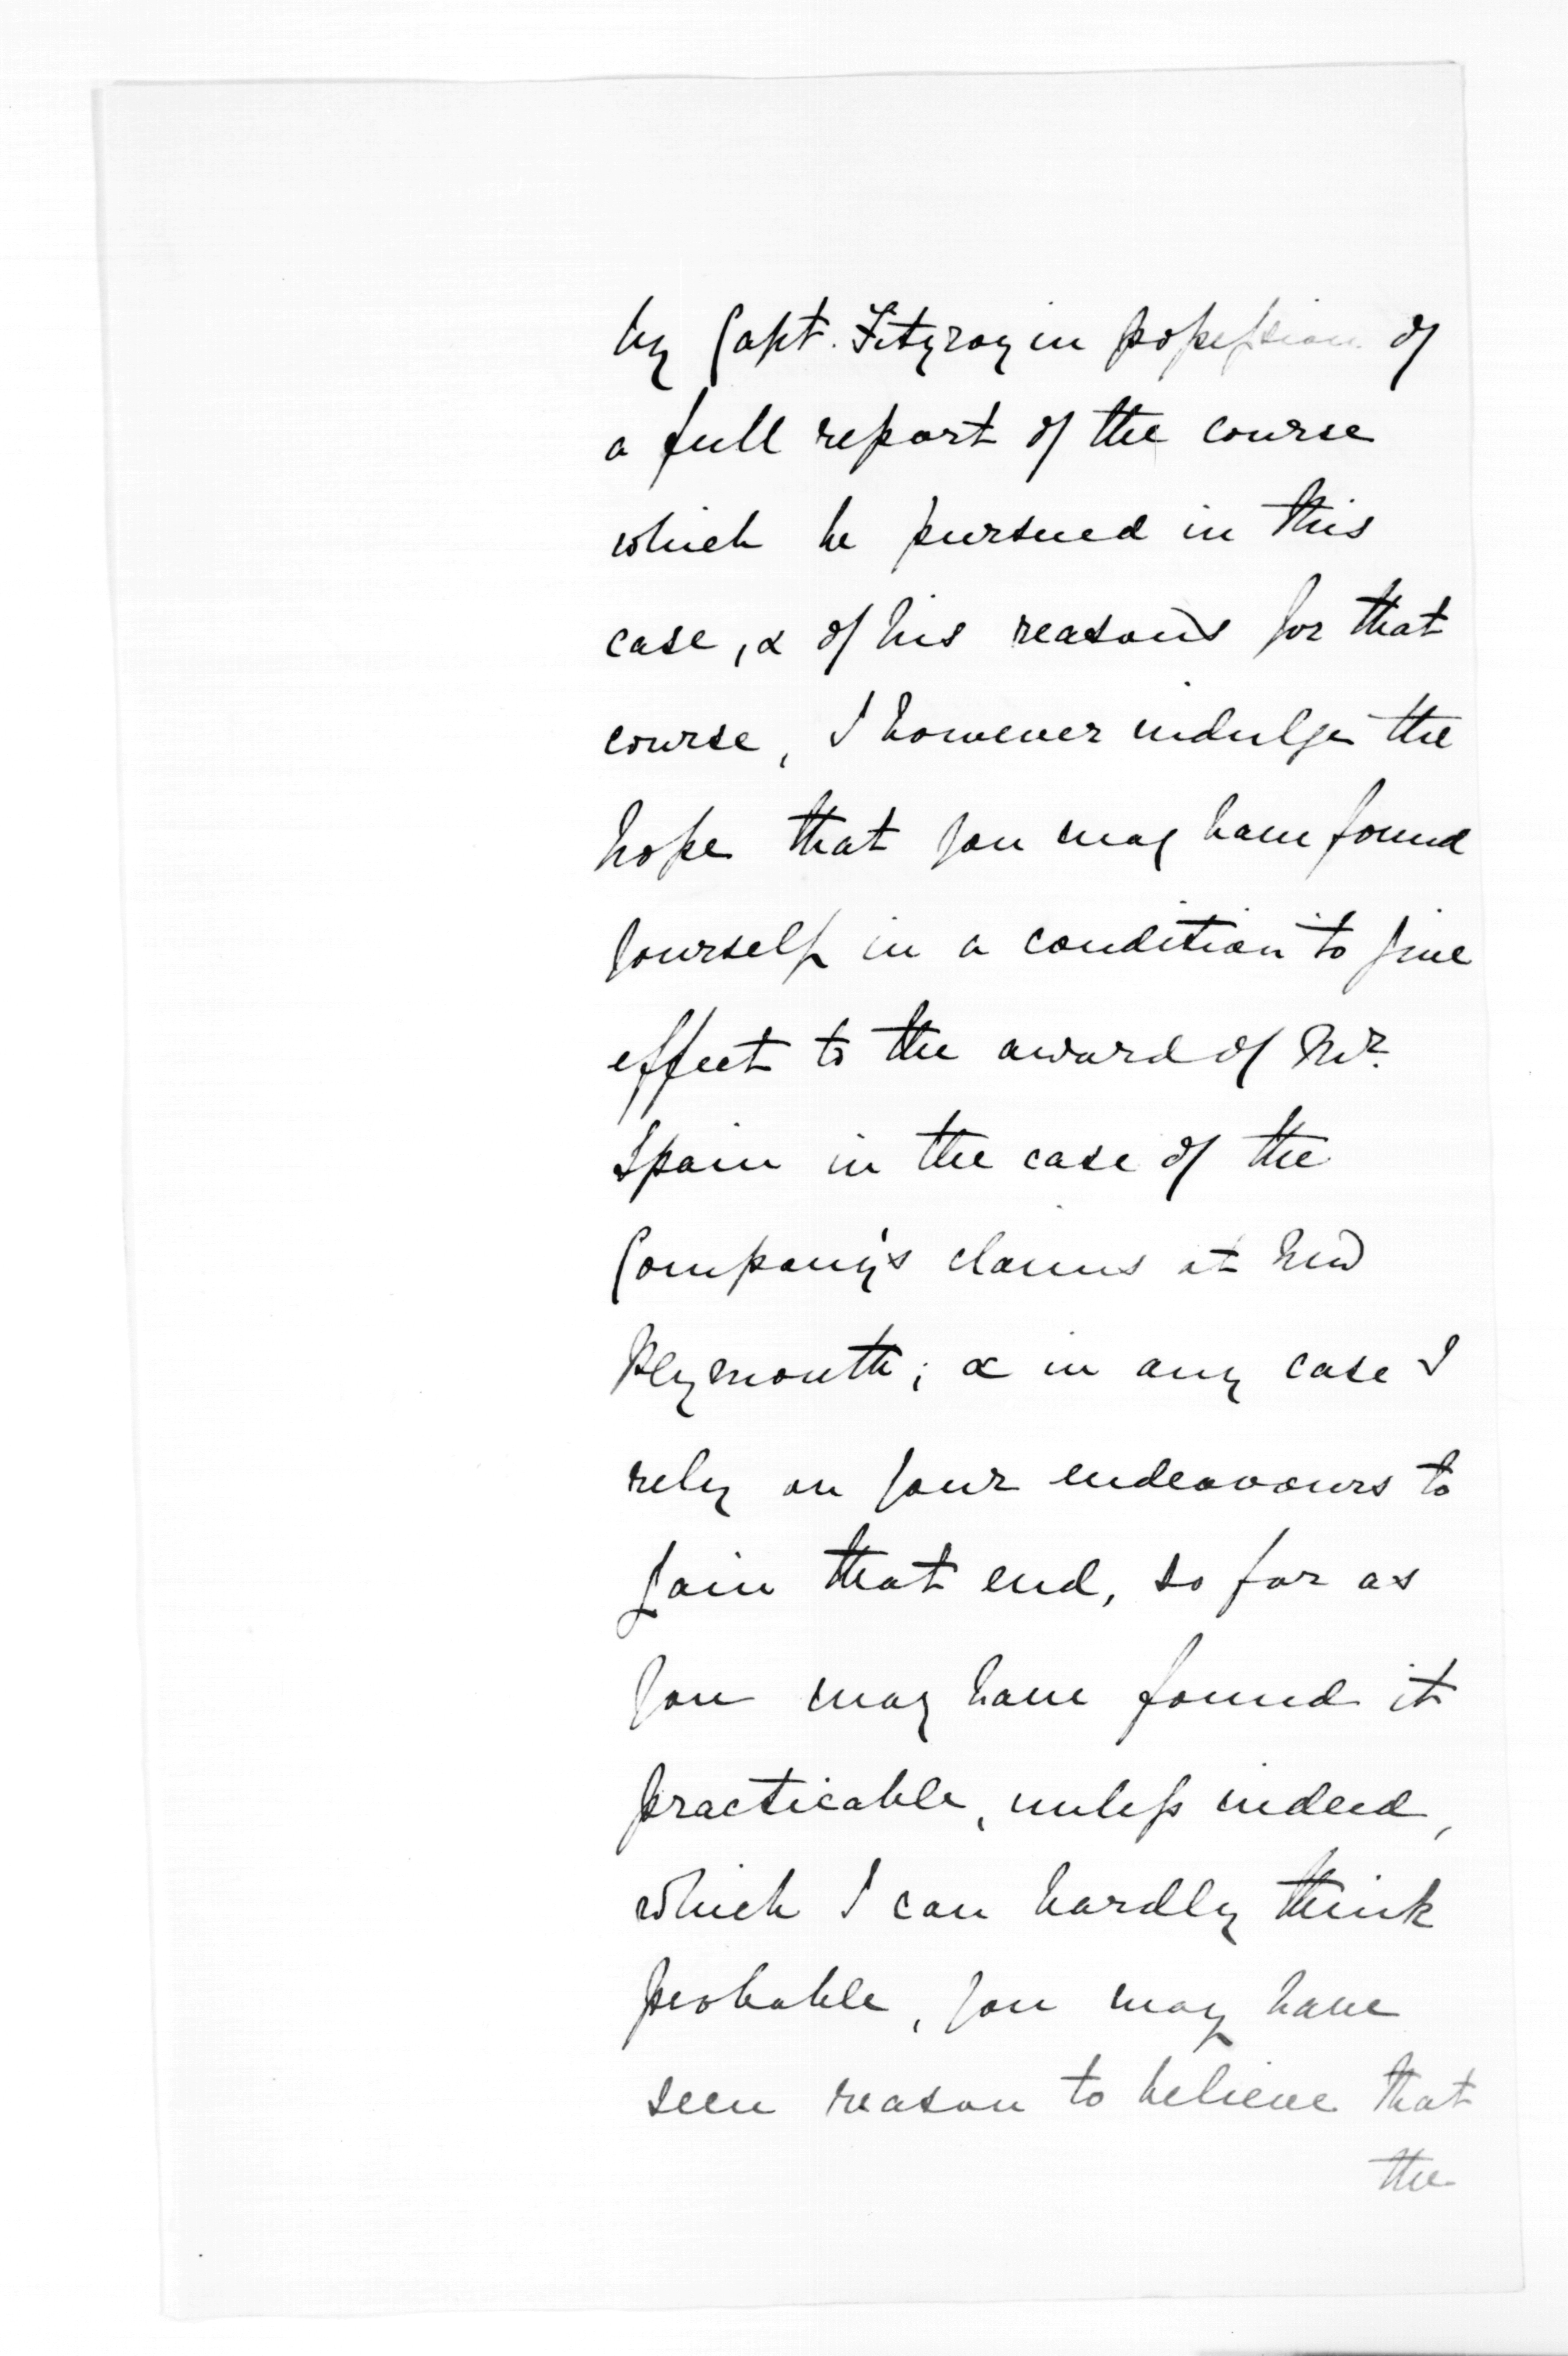 by Capt. Fitzroy in possession of
a full report of the course
which he pursued in this
case, & of his reasons for that
course, I however indulge the
hope that you may have found
yourself in a condition to give
effect to the award of Mr.
Spain in the case of the
Company's claims at New
Plymouth; & in any case I
rely on your endeavours to
gain that end, so far as
you may have found it
practicable, unless indeed,
which I can hardly think
probable, you may have
seen reason to believe that
the